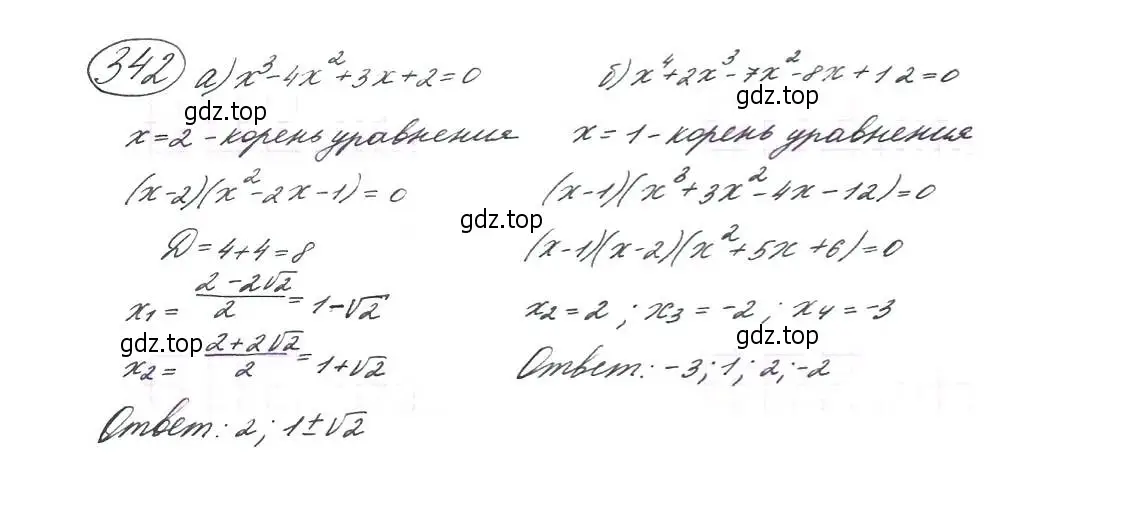 342 а) x³-4x²+3x+2=0
gdz.top
x=2 - корень уравнения
(x-2)(x²-2x-1)=0
D=4+4=8
x₁ = (2-2√2)/2 = 1-√2
gdz.top
x₂ = (2+2√2)/2 = 1+√2
Ответ: 2; 1±√2
б) x⁴+2x³-7x²-8x+12=0
gdz.top
x=1 - корень уравнения
(x-1)(x³+3x²-4x-12)=0
gdz.top
(x-1)(x-2)(x²+5x+6)=0
x₂=2; x₃=-2; x₄=-3
gdz.top
Ответ: -3; 1; 2; -2